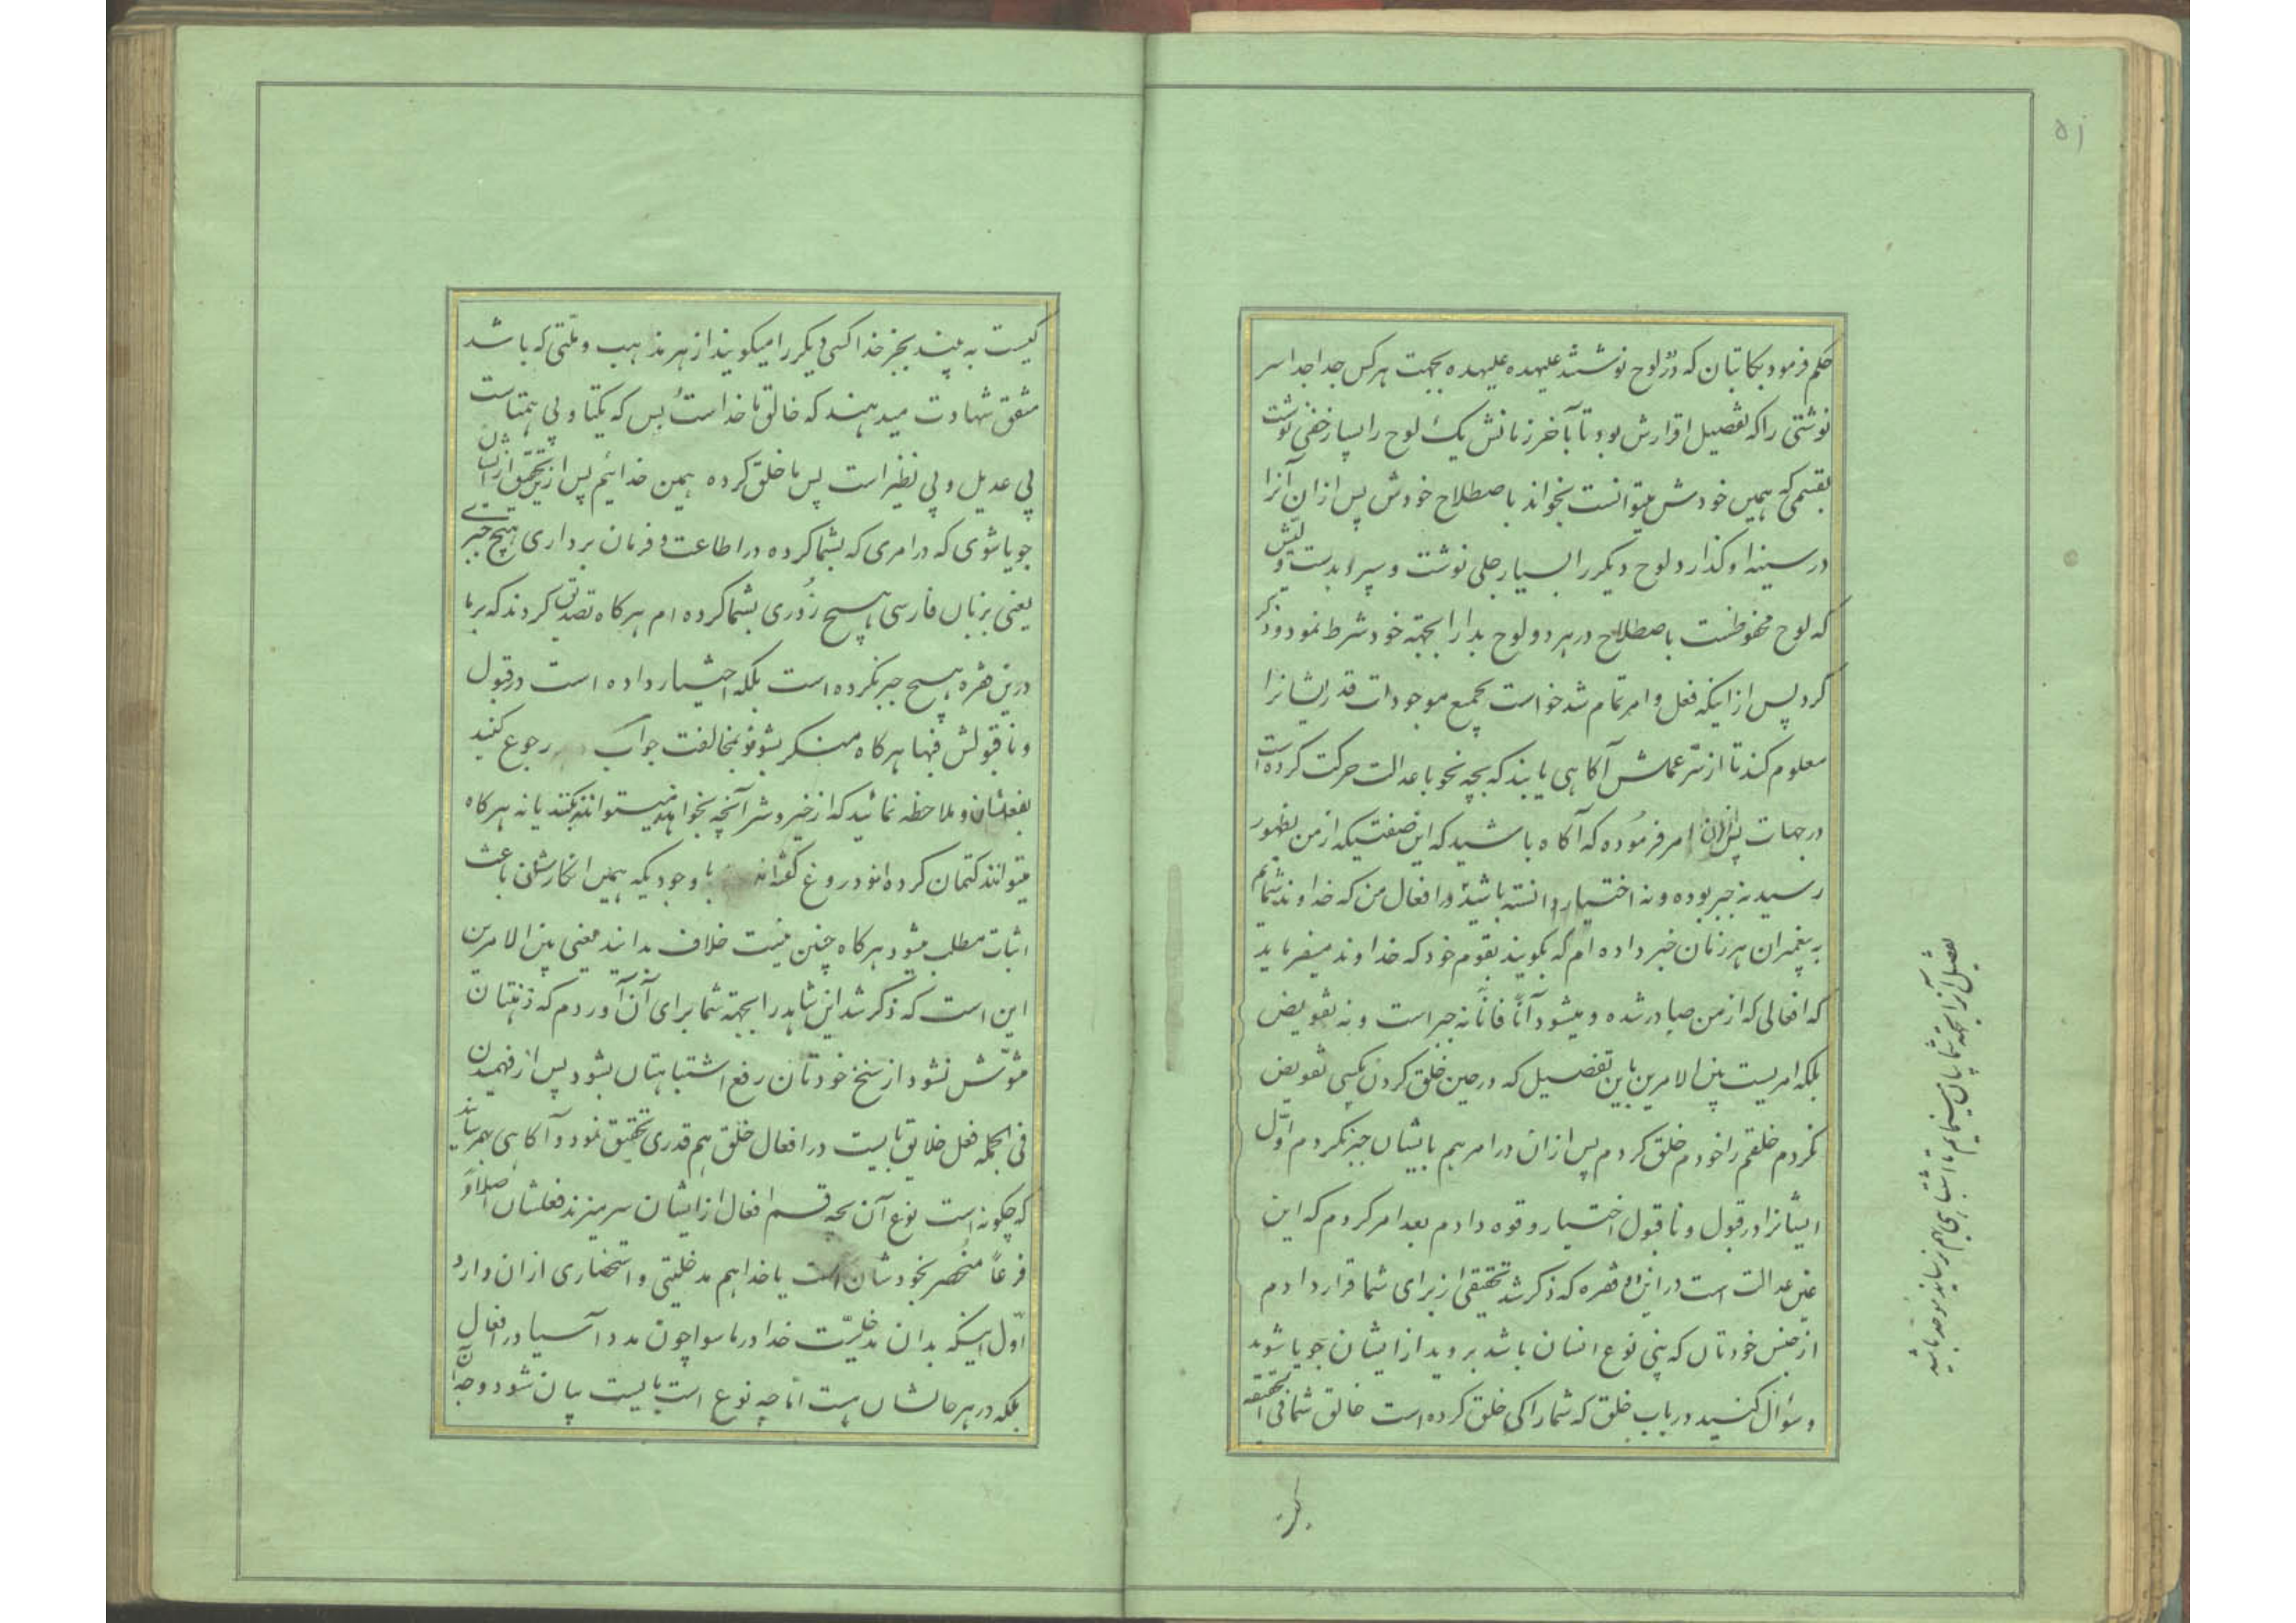 ۵۱
حکم فرمود بکاتبان که دو لوح نوشتند علیهده علیهده بجهت هر کس جدا جدا سر
نوشتی را که تفصیل اقرارش بود تا آخر زمانش یک لوح را بسیار خفی نوشت
بقسمی که همین خودش میتوانست بخواند باصطلاح خودش پس ازان آنرا
در سینه او گذارد لوح دیگر را بسیار جلی نوشت و سپرد بدست
که لوح محفوظست باصطلاح در هر دو لوح بدا را بجهته خود شرط نمود و ذکر
کرد پس از اینکه فعل و امر تمام شد خواست بجمیع موجودات قدر ایشانرا
معلوم کند تا از سّر عملش آکاهی یابند که بچه نحو با عدالت حرکت کرده است
در جهات پس ازان امر فرموده که آکاه باشید که این صفتیکه از من بظهور
رسید نه جبر بوده و نه اختیار دانسته باشید در افعال من که خداوند شمایم
به پیغمبران هر زمان خبر داده ام که بکویند بقوم خود که خداوند میفرماید
که افعالی که از من صادر شده و میشود آنّاً فانّاً نه جبر است و نه تفویض
بلکه امریست بین الامرین باین تفصیل که در حین خلق کردن بکسی تفویض
نکردم خلقم را خودم خلق کردم پس ازان در امر هم بایشان جبر نکردم اوّل
ایشانرا در قبول و نا قبول اختیار و قوه دادم بعد امر کردم که این
عین عدالت است در این دو فقره که ذکر شد تحقیقی از برای شما قرار دادم
از جنس خودتان که بنی نوع انسان باشد بروید از ایشان جویا شوید
و سؤال کنید در باب خلق که شما را کی خلق کرده است خالق شما فی الحقیقه
تفصیل آنرا بجهته شما بیان مینمایم تا اشتباهی بهم نرسانید متوجه باشید
کیست به بینید بجز خدا کسی دیکر را میکویند از هر مذهب و ملّتی که باشد
متفق شهادت میدهند که خالق ما خداست و بس که یکتا و بی همتاست
بی عدیل و بی نظیر است پس ما خلق کرده همین خدائیم پس ازین تحقیق ازیشان
جویا شوی که در امری که بشما کرده در اطاعت و فرمان برداری هیچ جبری
یعنی بزبان فارسی هیچ زوری بشما کرده ام هرکاه تصدیق کردند که بر ما
درین فقره هیچ جبر نکرده است بلکه اختیار داده است در قبول
و نا قبولش فبها هرکاه منکر بشوند بمخالفت جواب رجوع کنید
بفعلشان و ملاحظه نمائید که از خیر و شر آنچه بخواهند میتوانند بکنند یا نه هرکاه
میتوانند کتمان کرده اند و دروغ کفته اند با وجودیکه همین انکارشان باعث
اثبات مطلب میشود هرکاه چنین نیست خلاف بدانند یعنی بین الامرین
این است که ذکر شد این شاهد را بجهته شما برای آن آوردم که ذهنتان
مشوّش نشود از سنخ خودتان رفع اشتباهتان بشود پس از فهمیدن
فی الجمله فعل خلایق بایست در افعال خلق هم قدری تحقیق نمود و آکاهی بهم رسانید
که چکونه است نوع آن بچه قسم افعال از ایشان سر میزند فعلشان اصلاً و
فرعاً منحصر بخودشان است یا خدا هم مدخلیتی و استحضاری ازان دارد
اوّل اینکه بدان مدخلیّت خدا در ماسوا چون مدد آسیا در افعال
بلکه در هر حالشان هست امّا چه نوع است بایست بیان شود وجه آن